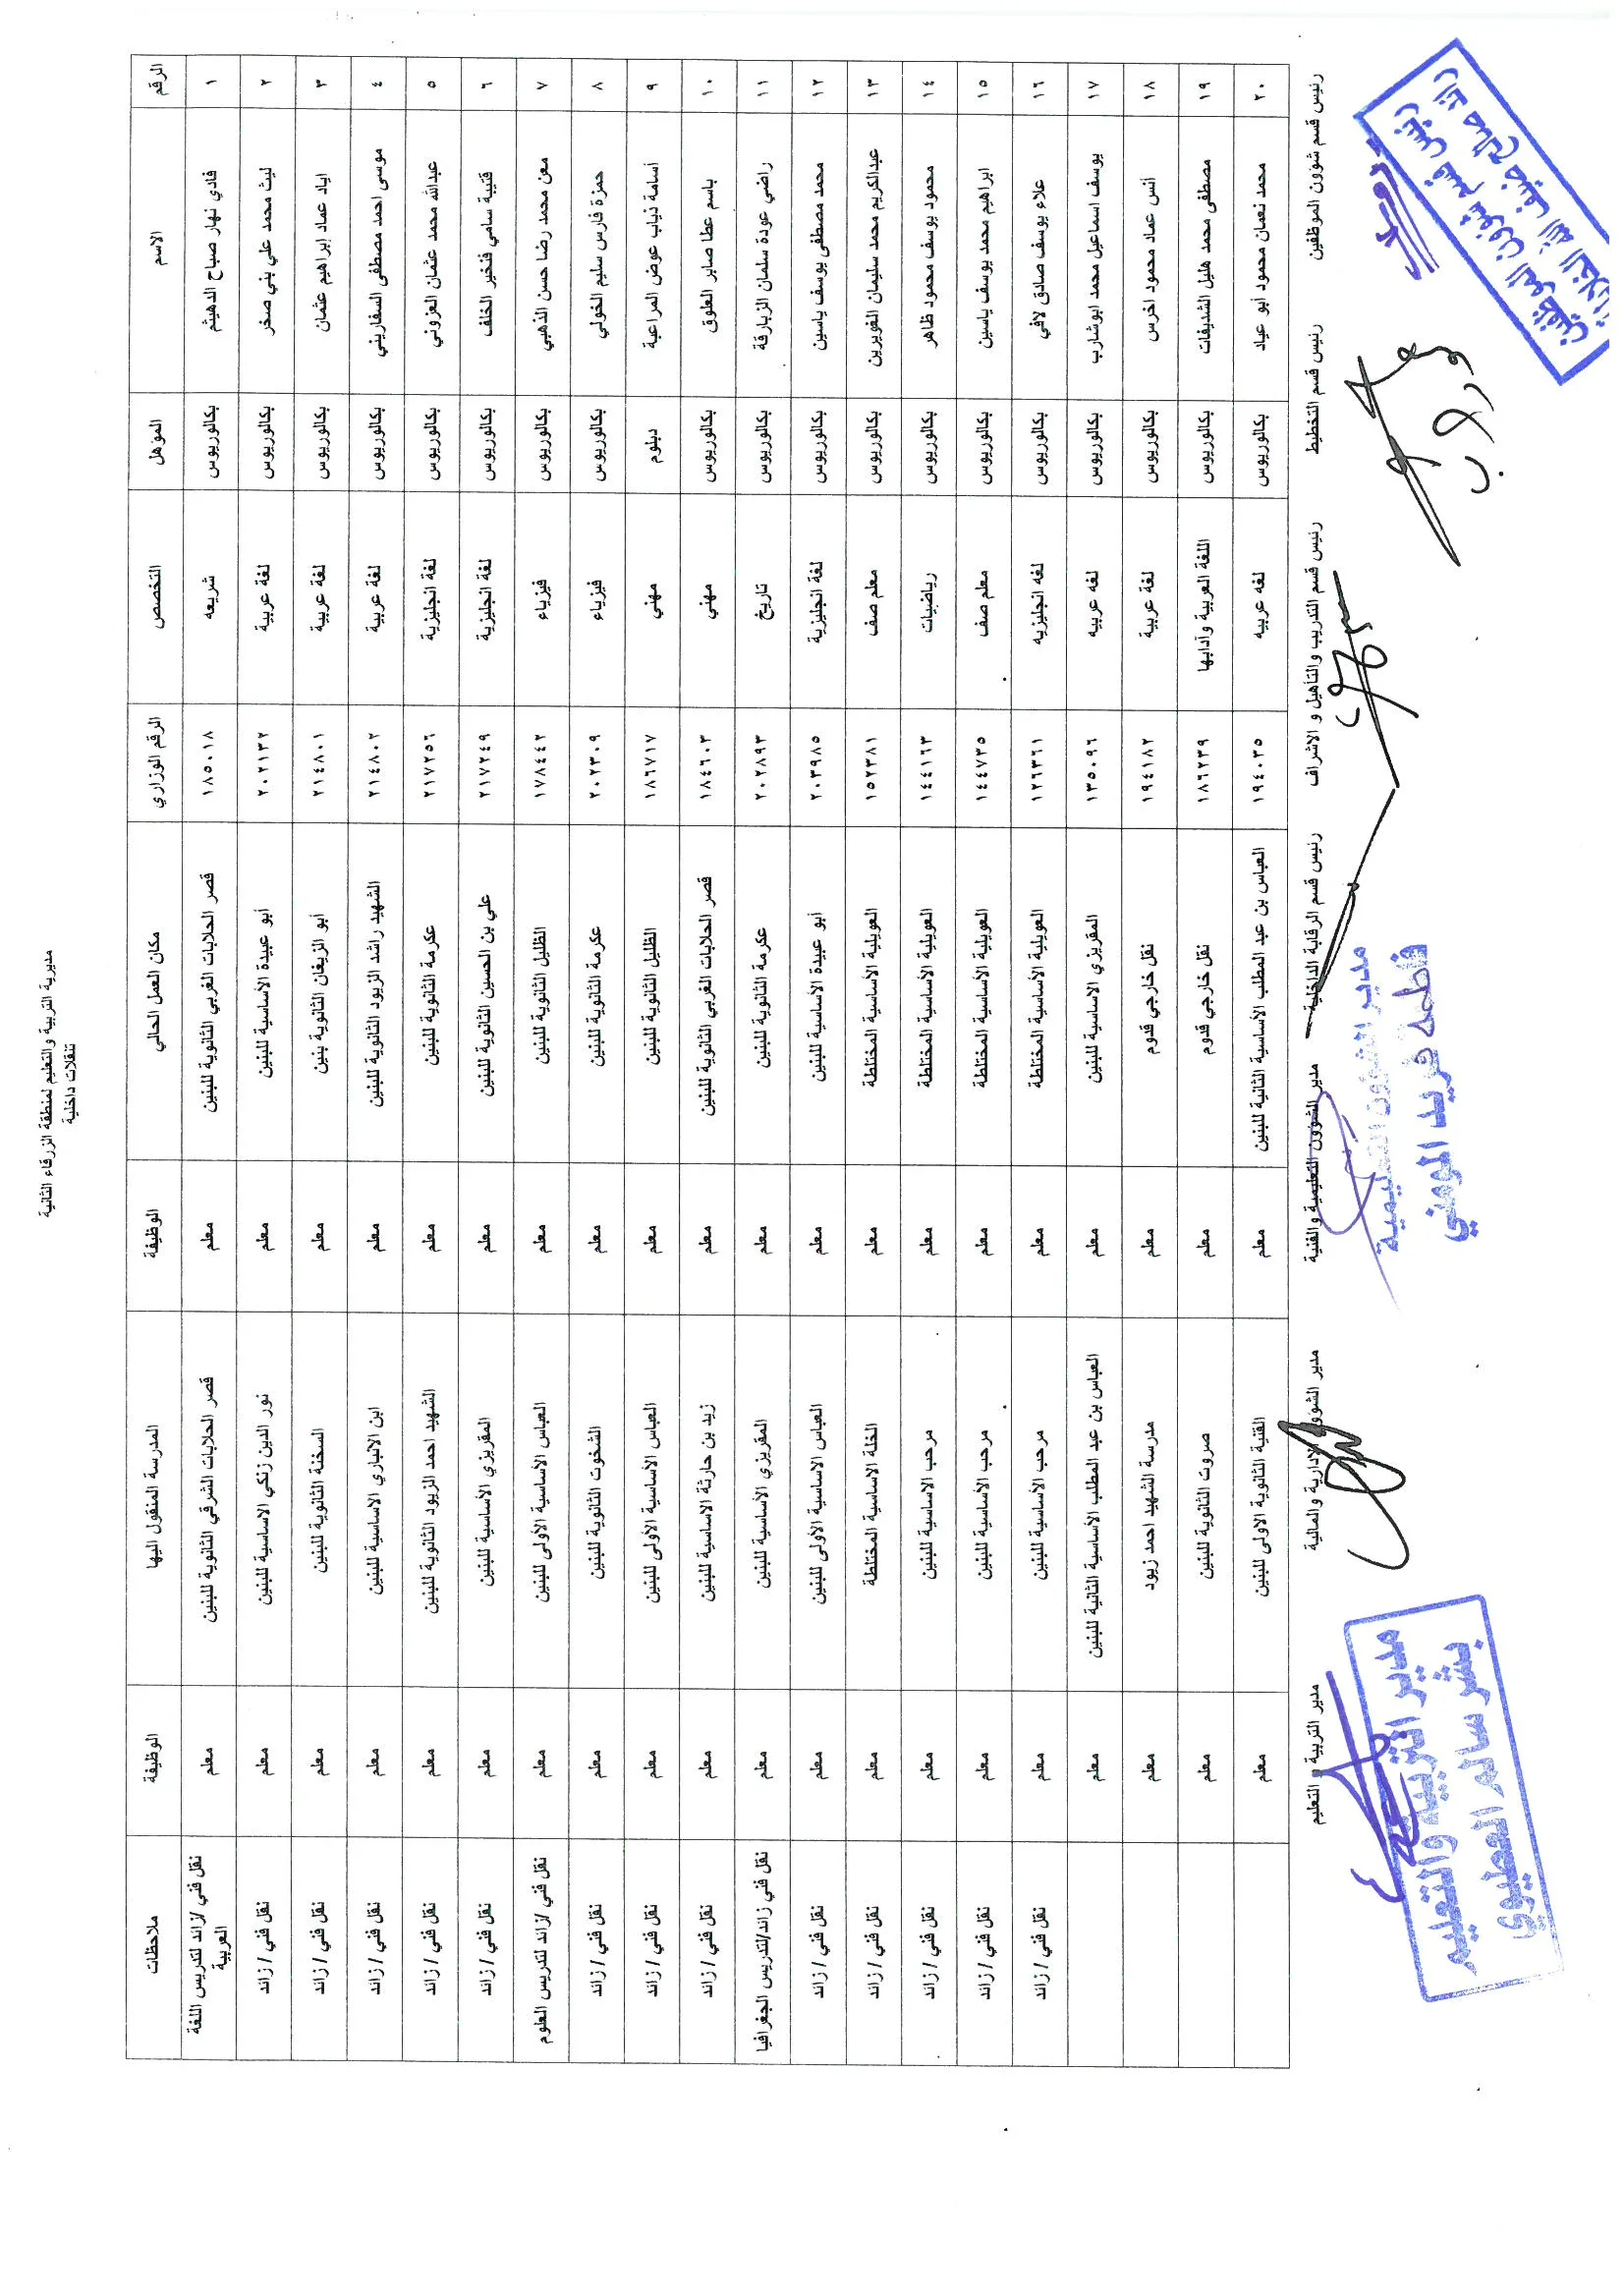 مديرية التربية والتعليم لمنطقة الزرقاء الثانية
تنقلات داخلية
الرقم الاسم المؤهل التخصص الرقم الوزاري مكان العمل الحالي الوظيفة المدرسة المنقول اليها الوظيفة ملاحظات
١ فادي نهار صباح الدهيثم بكالوريوس شريعه ١٨٥٠١٨ قصر الحلابات الغربي الثانوية للبنين معلم قصر الحلابات الشرقي الثانوية للبنين معلم نقل فني /زائد لتدريس اللغة العربية
٢ ليث محمد علي بني صخر بكالوريوس لغة عربية ٢٠٢١٣٢ أبو عبيدة الأساسية للبنين معلم نور الدين زنكي الاساسية للبنين معلم نقل فني / زائد
٣ اياد عماد إبراهيم عثمان بكالوريوس لغة عربية ٢١٤٨٠١ أبو الزيغان الثانوية بنين معلم السخنة الثانوية للبنين معلم نقل فني / زائد
٤ موسى احمد مصطفى السفاريني بكالوريوس لغة عربية ٢١٤٨٠٢ الشهيد راشد الزيود الثانوية للبنين معلم ابن الانباري الاساسية للبنين معلم نقل فني / زائد
٥ عبدالله محمد عثمان العزوني بكالوريوس لغة انجليزية ٢١٧٢٥٦ عكرمة الثانوية للبنين معلم الشهيد احمد الزيود الثانوية للبنين معلم نقل فني / زائد
٦ قتيبة سامي فنخير الخلف بكالوريوس لغة انجليزية ٢١٧٢٤٩ علي بن الحسين الثانوية للبنين معلم المقريزي الأساسية للبنين معلم نقل فني / زائد
٧ معن محمد رضا حسن الذهبي بكالوريوس فيزياء ١٧٨٤٤٢ الظليل الثانوية للبنين معلم العباس الأساسية الأولى للبنين معلم نقل فني /زائد لتدريس العلوم
٨ حمزة فارس سليم الخولي بكالوريوس فيزياء ٢٠٢٣٠٩ عكرمة الثانوية للبنين معلم الشخوت الثانوية للبنين معلم نقل فني / زائد
٩ أسامة ذياب عوض المراعية دبلوم مهني ١٨٦٧١٧ الظليل الثانوية للبنين معلم العباس الأساسية الأولى للبنين معلم نقل فني / زائد
١٠ باسم عطا صابر العلوق بكالوريوس مهني ١٨٤٦٠٣ قصر الحلابات الغربي الثانوية للبنين معلم زيد بن حارثة الاساسية للبنين معلم نقل فني / زائد
١١ راضي عودة سلمان الزيارقة بكالوريوس تاريخ ٢٠٢٨٩٣ عكرمة الثانوية للبنين معلم المقريزي الأساسية للبنين معلم نقل فني زائد/لتدريس الجغرافيا
١٢ محمد مصطفى يوسف ياسين بكالوريوس لغة انجليزية ٢٠٣٩٨٥ أبو عبيدة الأساسية للبنين معلم العباس الاساسية الأولى للبنين معلم نقل فني / زائد
١٣ عبدالكريم محمد سليمان الغويرين بكالوريوس معلم صف ١٥٢٣٨١ العويلية الأساسية المختلطة معلم الخلة الاساسية المختلطة معلم نقل فني / زائد
١٤ محمود يوسف محمود ظاهر بكالوريوس رياضيات ١٤٤١٦٣ العويلية الأساسية المختلطة معلم مرحب الاساسية للبنين معلم نقل فني / زائد
١٥ ابراهيم محمد يوسف ياسين بكالوريوس معلم صف ١٤٤٧٣٥ العويلية الأساسية المختلطة معلم مرحب الأساسية للبنين معلم نقل فني / زائد
١٦ علاء يوسف صادق لافي بكالوريوس لغه انجليزيه ١٢٦٣٦١ العويلية الأساسية المختلطة معلم مرحب الأساسية للبنين معلم نقل فني / زائد
١٧ يوسف اسماعيل محمد ابوشارب بكالوريوس لغه عربيه ١٣٥٠٩٦ المقريزي الاساسية للبنين معلم العباس بن عبد المطلب الأساسية الثانية للبنين معلم
١٨ أنس عماد محمود اخرس بكالوريوس لغة عربية ١٩٤١٨٢ نقل خارجي قدوم معلم مدرسة الشهيد احمد زيود معلم
١٩ مصطفى محمد هليل الشديفات بكالوريوس اللغة العربية وآدابها ١٨٦٢٣٩ نقل خارجي قدوم معلم صروت الثانوية للبنين معلم
٢٠ محمد نعمان محمود أبو عياد بكالوريوس لغه عربيه ١٩٤٠٣٥ العباس بن عبد المطلب الأساسية الثانية للبنين معلم القنية الثانوية الاولى للبنين معلم
رئيس قسم شؤون الموظفين رئيس قسم التخطيط رئيس قسم التدريب والتأهيل و الاشراف رئيس قسم الرقابة الداخلية مدير الشؤون التعليمية والفنية مدير الشؤون الإدارية والمالية مدير التربية و التعليم
رئيس قسم شؤون الموظفين
مدير الشؤون التعليمية
فاطمة فريد المومني
مدير التربية والتعليم
بشر سالم العطيوي